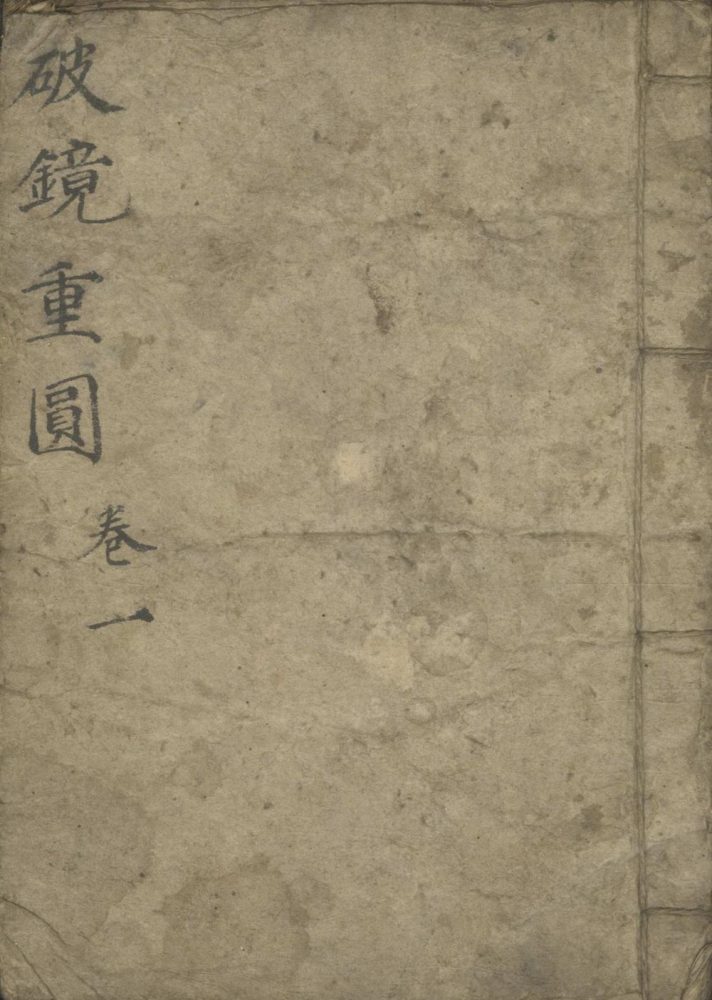 破鏡重圓
卷一